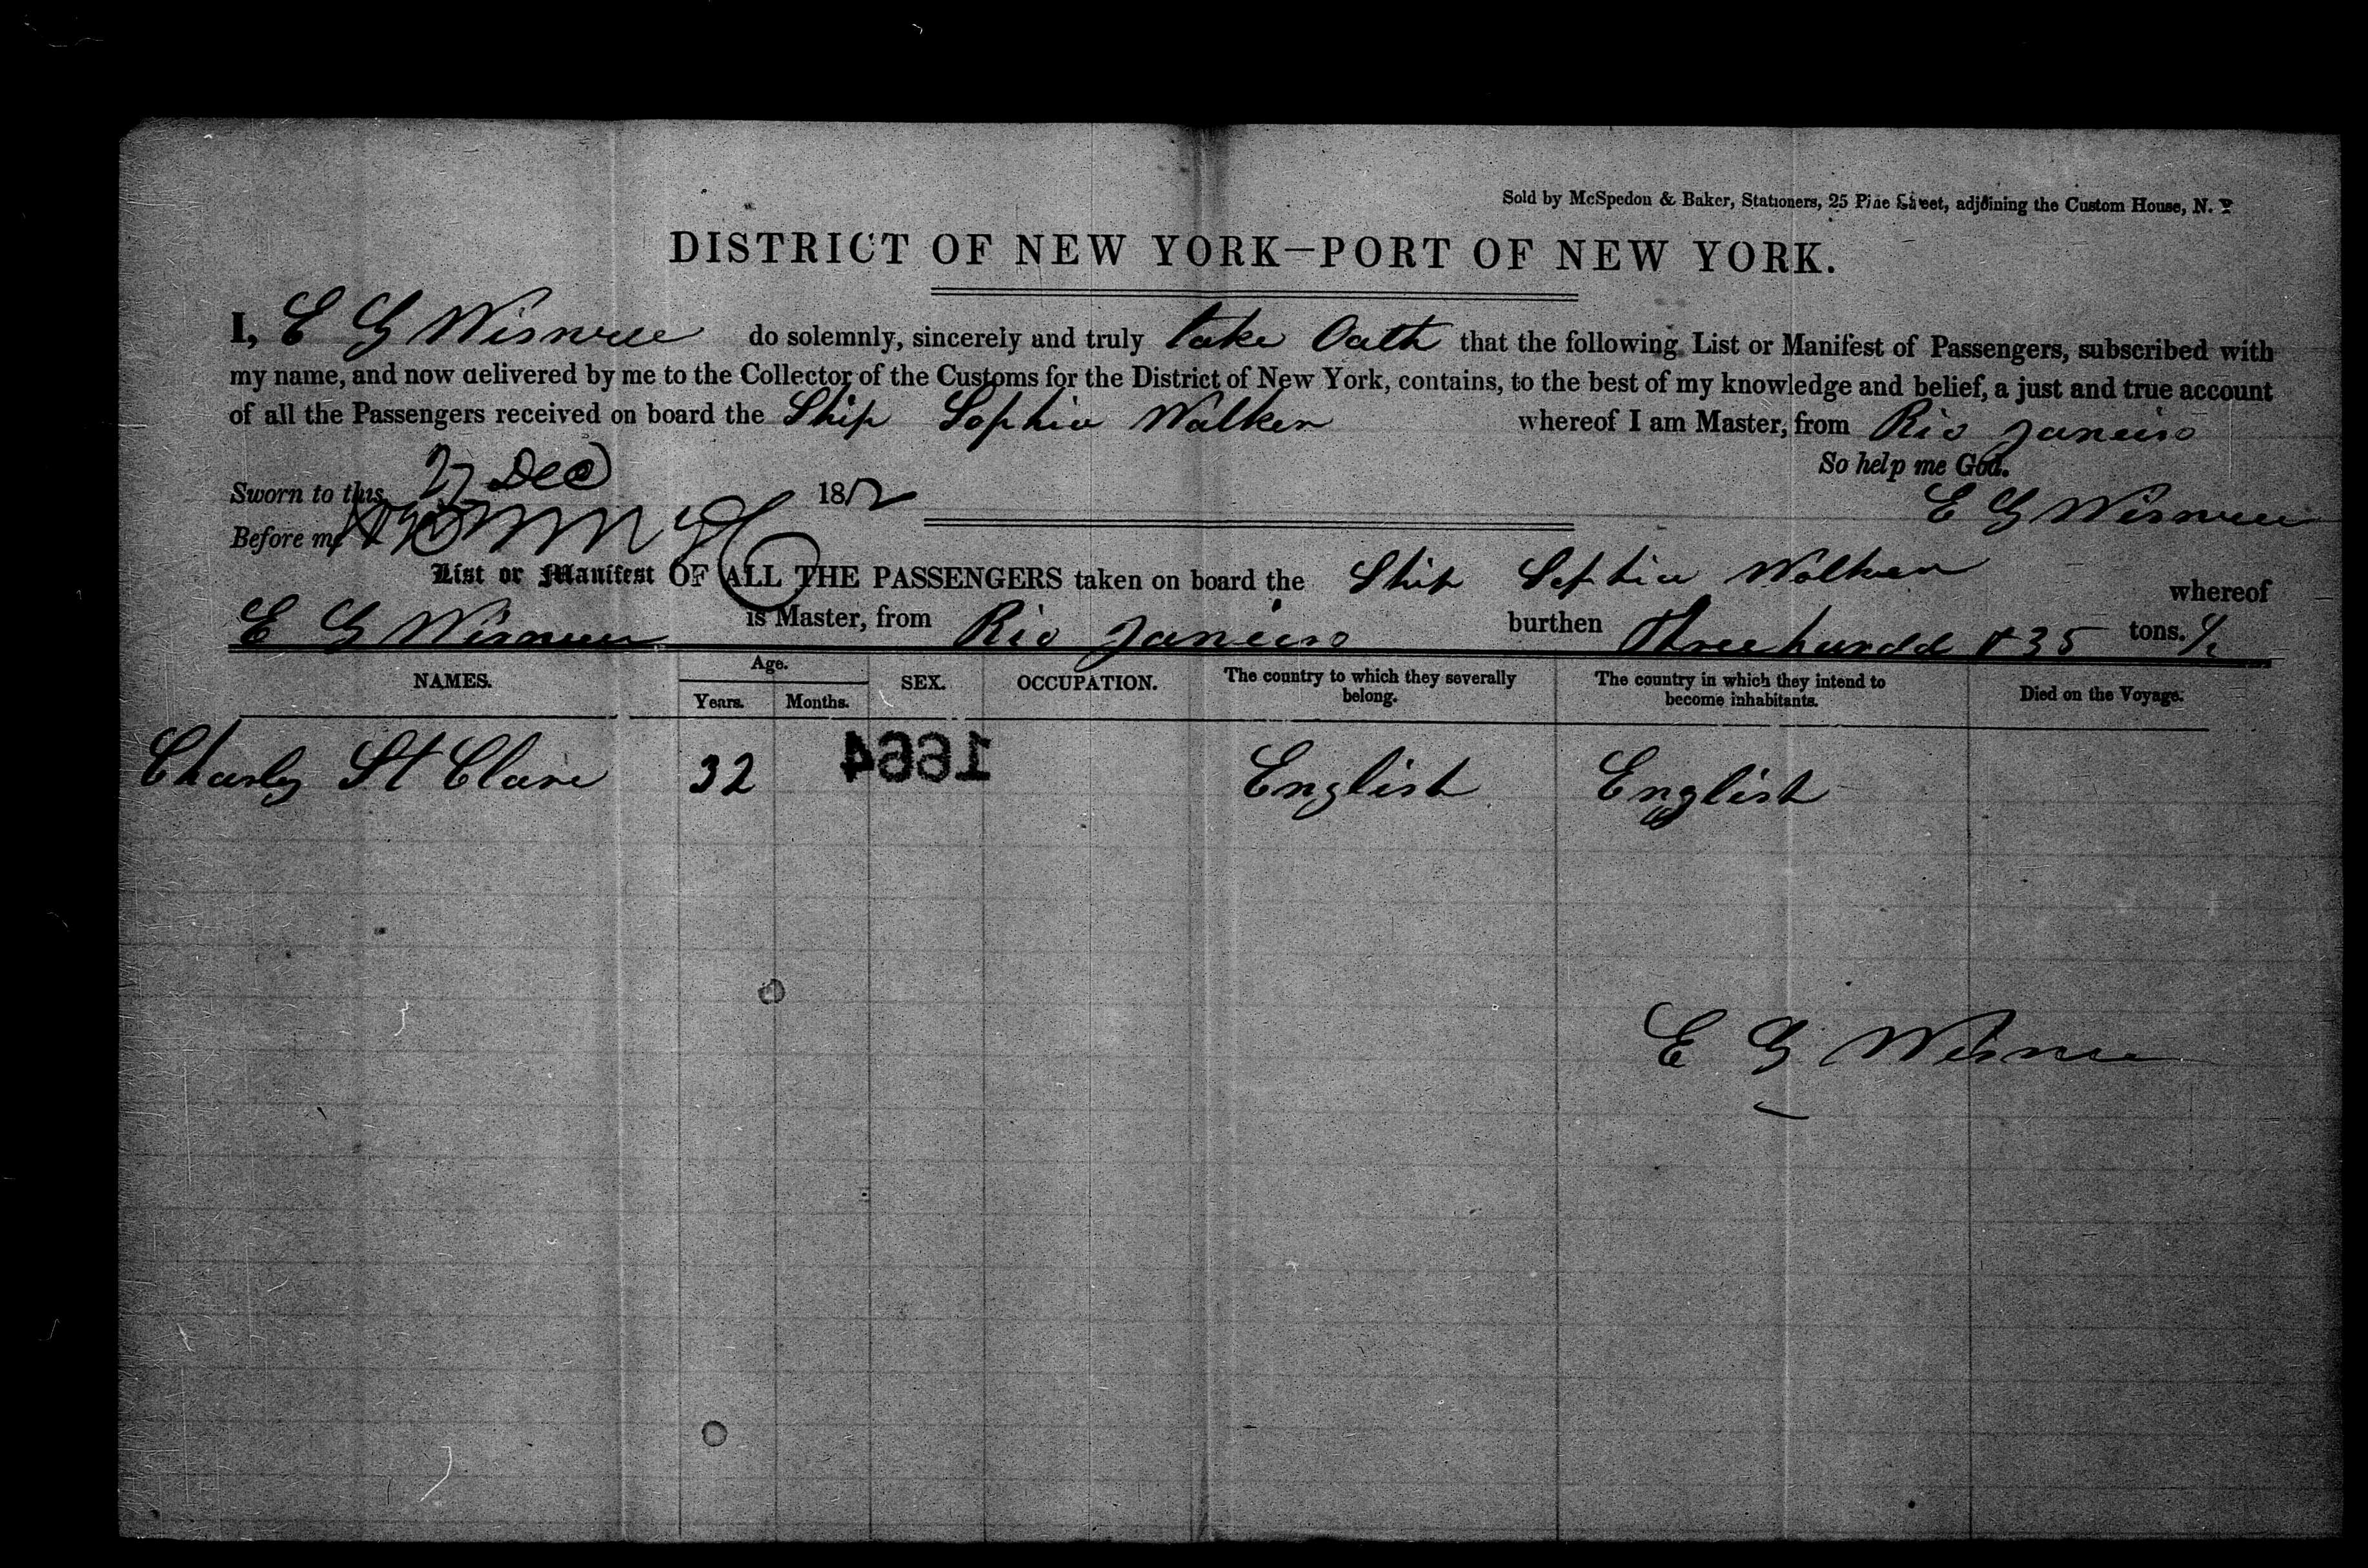 Sold by McSpedon & Baker, Stationers, 25 Pine Street, adjoining the Custom House, N. Y
DISTRICT OF NEW YORK—PORT OF NEW YORK.
I, E G do solemnly, sincerely and truly take Oath that the following List or Manifest of Passengers, subscribed with
my name, and now delivered by me to the Collector of the Customs for the District of New York, contains, to the best of my knowledge and belief, a just and true account
of all the Passengers received on board the Ship Sophia Walker whereof I am Master, from Rio Janeiro
So help me God.
Sworn to this 27 Dec 1852
E G
Before me
List or Manifest OF ALL THE PASSENGERS taken on board the Ship Sophia Walker whereof
E G is Master, from Rio Janeiro burthen Three hundd & 35 tons.
NAMES. Age. Years. Months. SEX. OCCUPATION. The country to which they severally belong. The country in which they intend to become inhabitants. Died on the Voyage.
Charly St Clare 32 English English
1664
E G